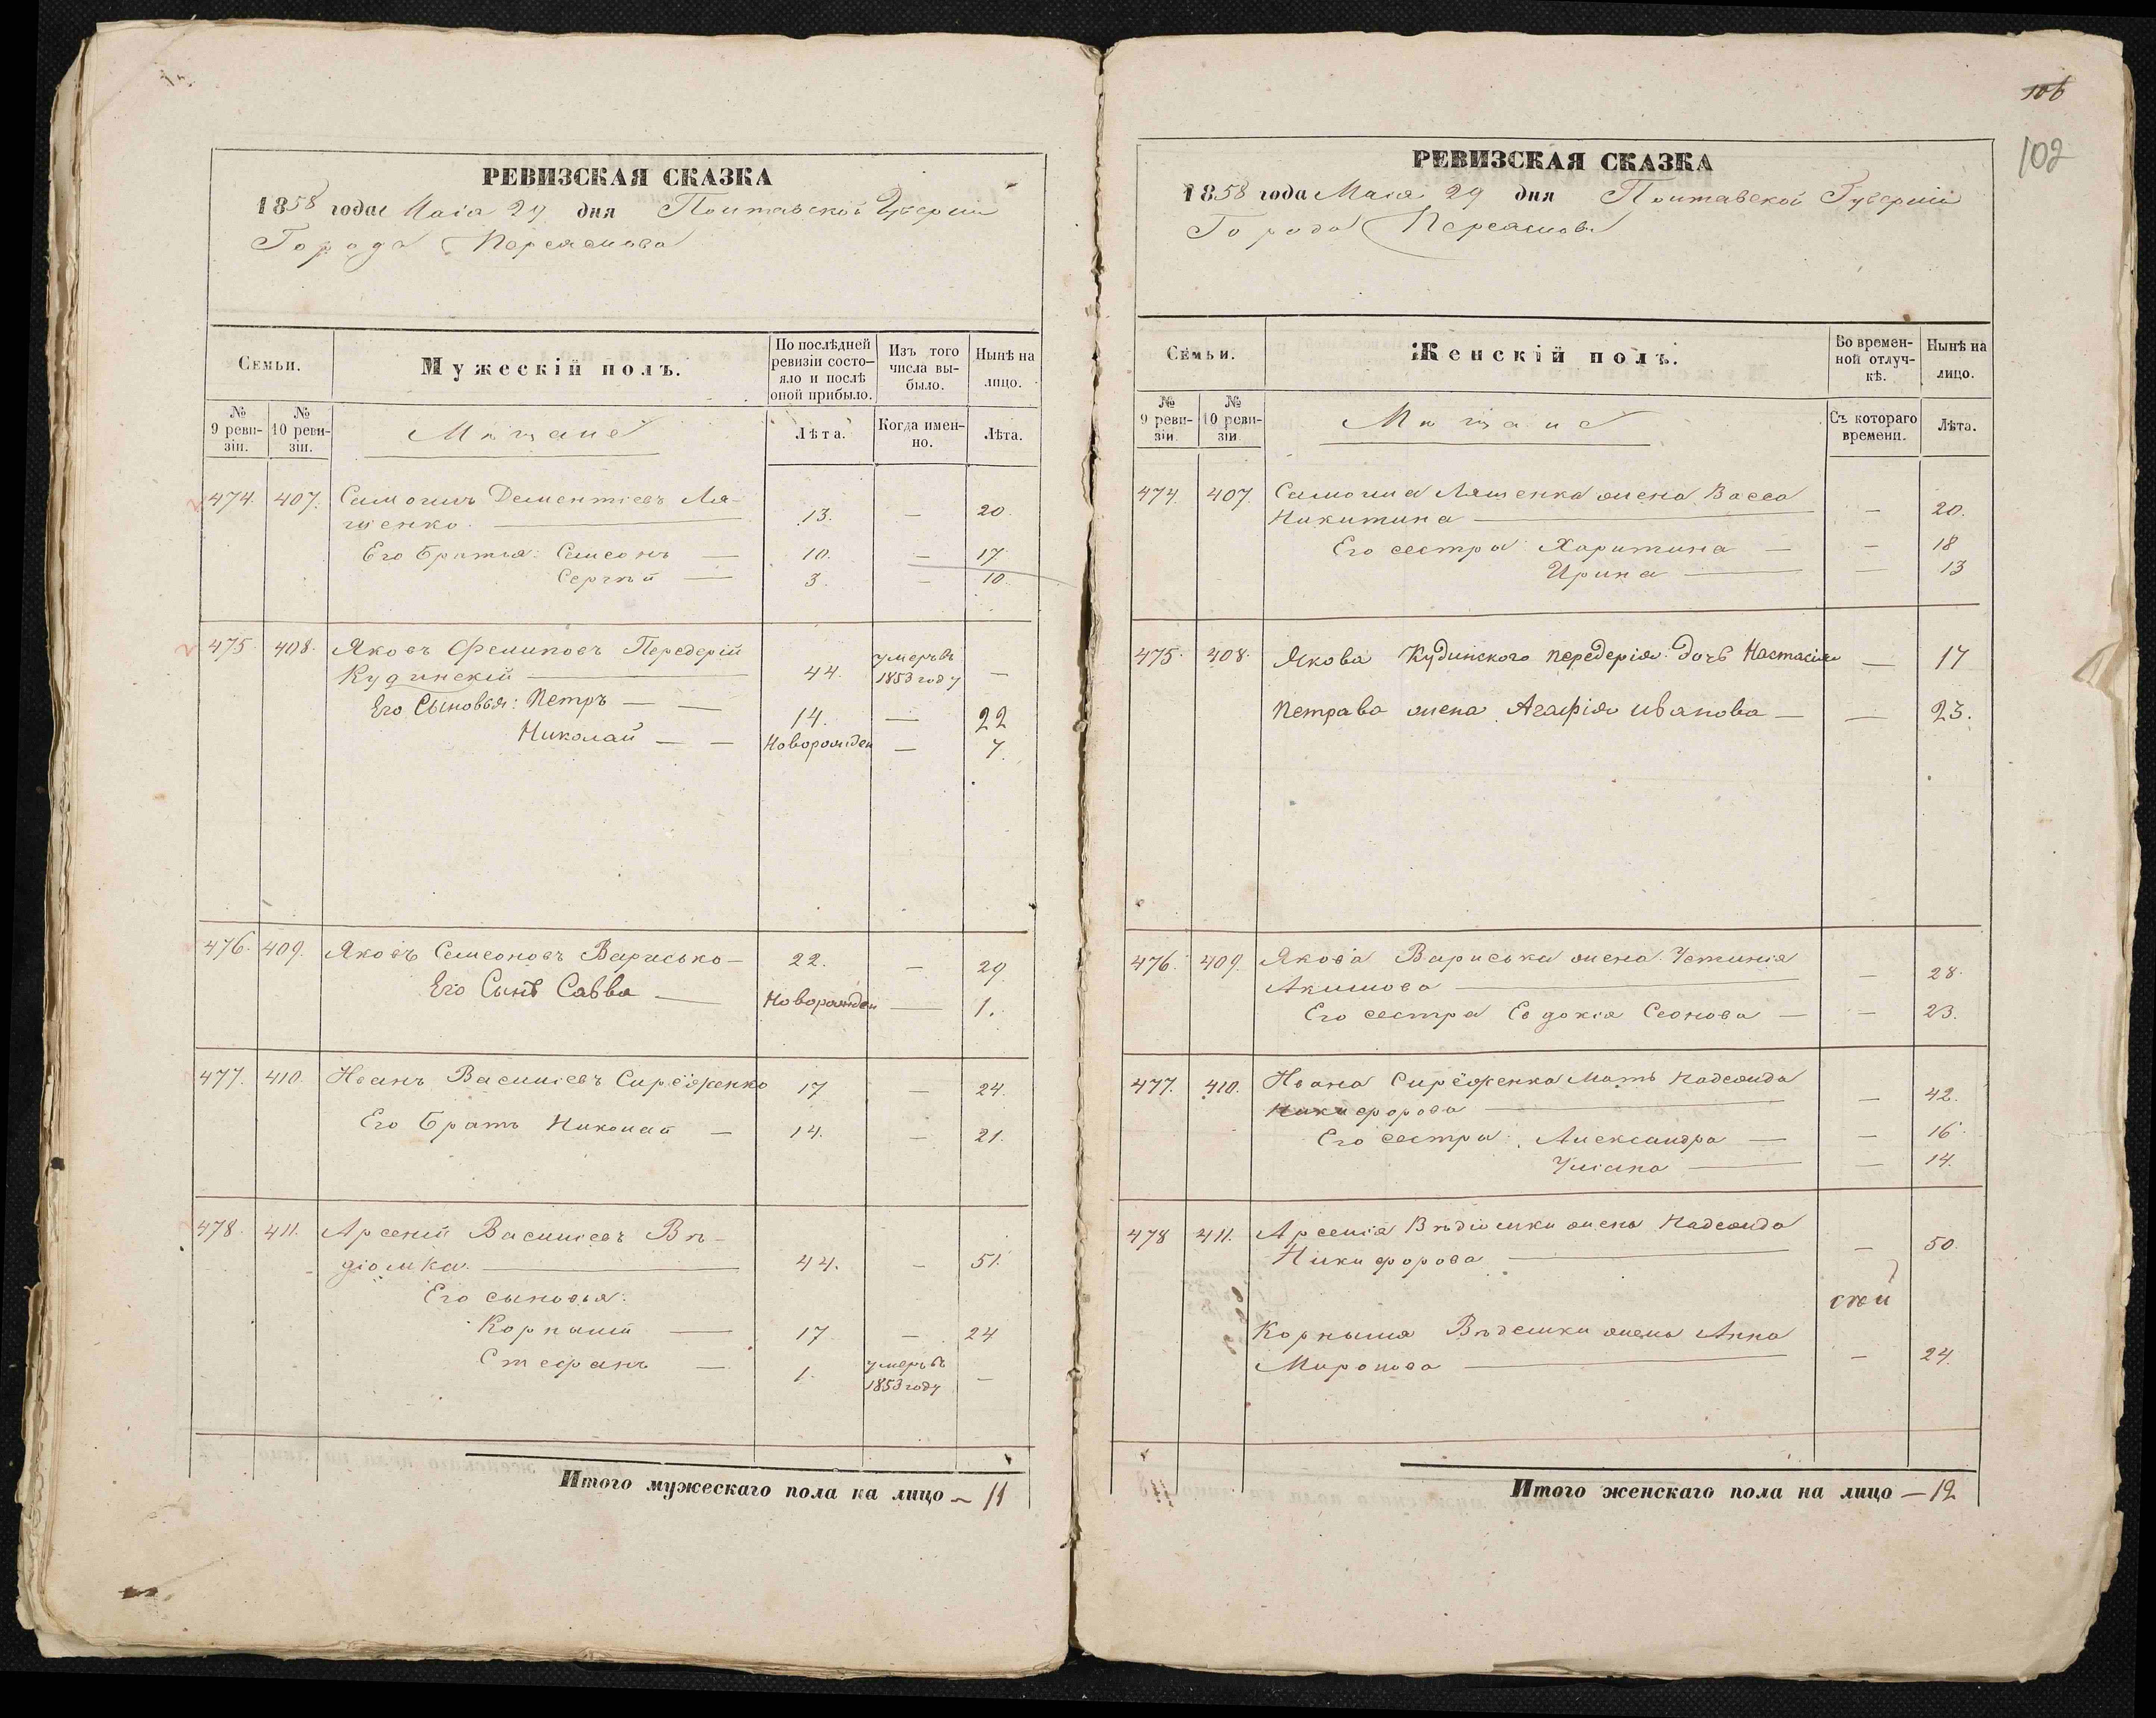 РЕВИЗСКАЯ СКАЗКА
1858 года Маія 29 дня Полтавской Губерніи
Города Переяслова
Семьи.
Мужескій полъ.
По послѣдней ревизіи состо-
яло и послѣ
оной прибыло.
Изъ того
числа вы-
было.
Нынѣ на
лицо.
№
9 реви-
зіи.
№
10 реви-
зіи.
Мѣщане
Лѣта.
Когда имен-
но.
Лѣта.
474. 407. Самоилъ Дементіевъ Ля-
шенко. — 13. — 20.
Его братья: Семеонъ — 10. — 17.
Сергѣй — 3. — 10.
475. 408. Яковъ Филиповъ Передерій
Кудинскій — 44. умеръ въ 1853 году —
Его Сыновья: Петръ — — 14. — 22
Николай — — Новорожден — 7.
476. 409. Яковъ Семеоновъ Варисько — 22. — 29
Его Сынъ Савва — Новорожден — 1.
477. 410 Иванъ Василіевъ Сирёженко 17 — 24.
Его братъ Николай — 14. — 21.
478. 411. Арсеній Василіевъ Вѣ-
діомка. — 44. — 51.
Его сыновья:
Корнилій — 17 — 24
Стефанъ — 1. умеръ въ 1853 году —
Итого мужескаго пола на лицо — 11
106
102
РЕВИЗСКАЯ СКАЗКА
1858 года Маія 29 дня Полтавской Губерніи
Города Переяслова
Семьи.
Женскій полъ.
Во времен-
ной отлуч-
кѣ.
Нынѣ на
лицо.
№
9 реви-
зіи.
№
10 реви-
зіи.
Мѣщане
Съ котораго
времени.
Лѣта.
474. 407. Самоила Ляшенка жена Васса
Никитина — — 20.
Его сестра Харитина — — 18
Ирина — — 13
475. 408. Якова Кудинского передерія дочь Настасія — 17
Петрава жена Агафія Иванова — — 23.
476. 409. Якова Вариська жена Устинія
Акимова — — 28.
Его сестра Евдокія Сеонова — — 23.
477. 410. Ивана Сирёженка Мать Надежда
Никифорова — — 42.
Его сестра: Александра — — 16
Уліана — — 14.
478 411. Арсенія Вѣдіомки жена Надежда
Никифорова — — 50.
Корнилія Вѣдемки жена Анна
Миронова — — 24.
Итого женскаго пола на лицо — 12